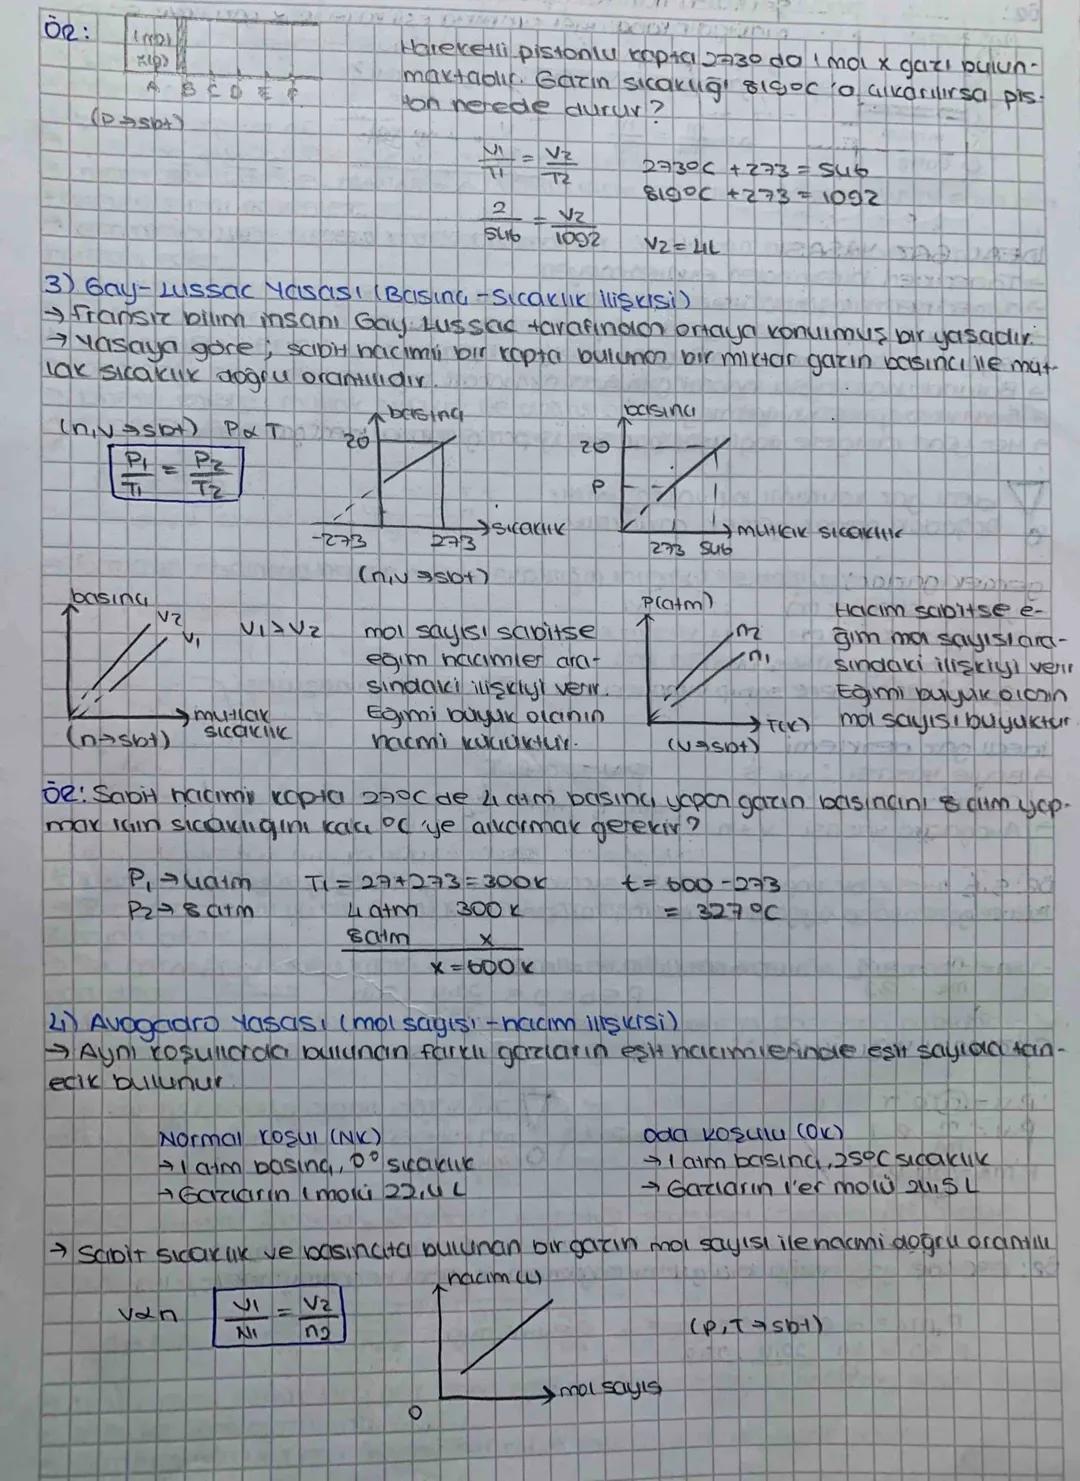 Ör:
Hareketli pistonlu kapta 273° da 1 mol x gazı bulun-
maktadır. Gazın sıcaklığı 819°C'a çıkarılırsa pis-
ton nerede durur?
1mol
x(g)
A B C D E F
(P→sbt)
V1/T1 = V2/T2
273°C +273 = 546
819°C +273 = 1092
2/546 = V2/1092
V2 = 4L
3) Gay-Lussac Yasası (Basınç-Sıcaklık İlişkisi)
→ Fransız bilim insanı Gay Lussac tarafından ortaya konulmuş bir yasadır.
→ Yasaya göre; sabit hacimli bir kapta bulunan bir miktar gazın basıncı ile mut-
lak sıcaklık doğru orantılıdır.
(n,v→sbt) P∝T
P1/T1 = P2/T2
basınç
20
-273
273
sıcaklık
(n,v→sbt)
basınç
20
P
273 546
mutlak sıcaklık
basınç
V2
V1
V1>V2
mutlak
sıcaklık
(n→sbt)
mol sayısı sabitse
eğim hacimler ara-
sındaki ilişkiyi verir.
Eğimi büyük olanın
hacmi küçüktür.
P(atm)
n2
n1
T(K)
(v→sbt)
Hacim sabitse e-
ğim mol sayısı ara-
sındaki ilişkiyi verir
Eğimi büyük olanın
mol sayısı büyüktür.
Ör: Sabit hacimli kapta 27°C de 4 atm basınç yapan gazın basıncını 8 atm yap-
mak için sıcaklığını kaç °C ye çıkarmak gerekir?
P1→4atm
T1 = 27+273=300K
t= 600-273
P2→8atm
4 atm 300K
= 327°C
8atm x
x=600K
4) Avogadro Yasası (mol sayısı-hacim ilişkisi)
→ Aynı koşullarda bulunan farklı gazların eşit hacimlerinde eşit sayıda tan-
ecik bulunur.
Normal koşul (NK)
→1 atm basınç, 0° sıcaklık
→Gazların 1 molü 22,4 L
Oda koşulu (OK)
→1 atm basınç, 25°C sıcaklık
→ Gazların 1'er molü 24,5 L
→ Sabit sıcaklık ve basınçta bulunan bir gazın mol sayısı ile hacmi doğru orantılı
V∝n
V1/N1 = V2/n2
hacim (L)
(P,T→sbt)
mol sayıs
0